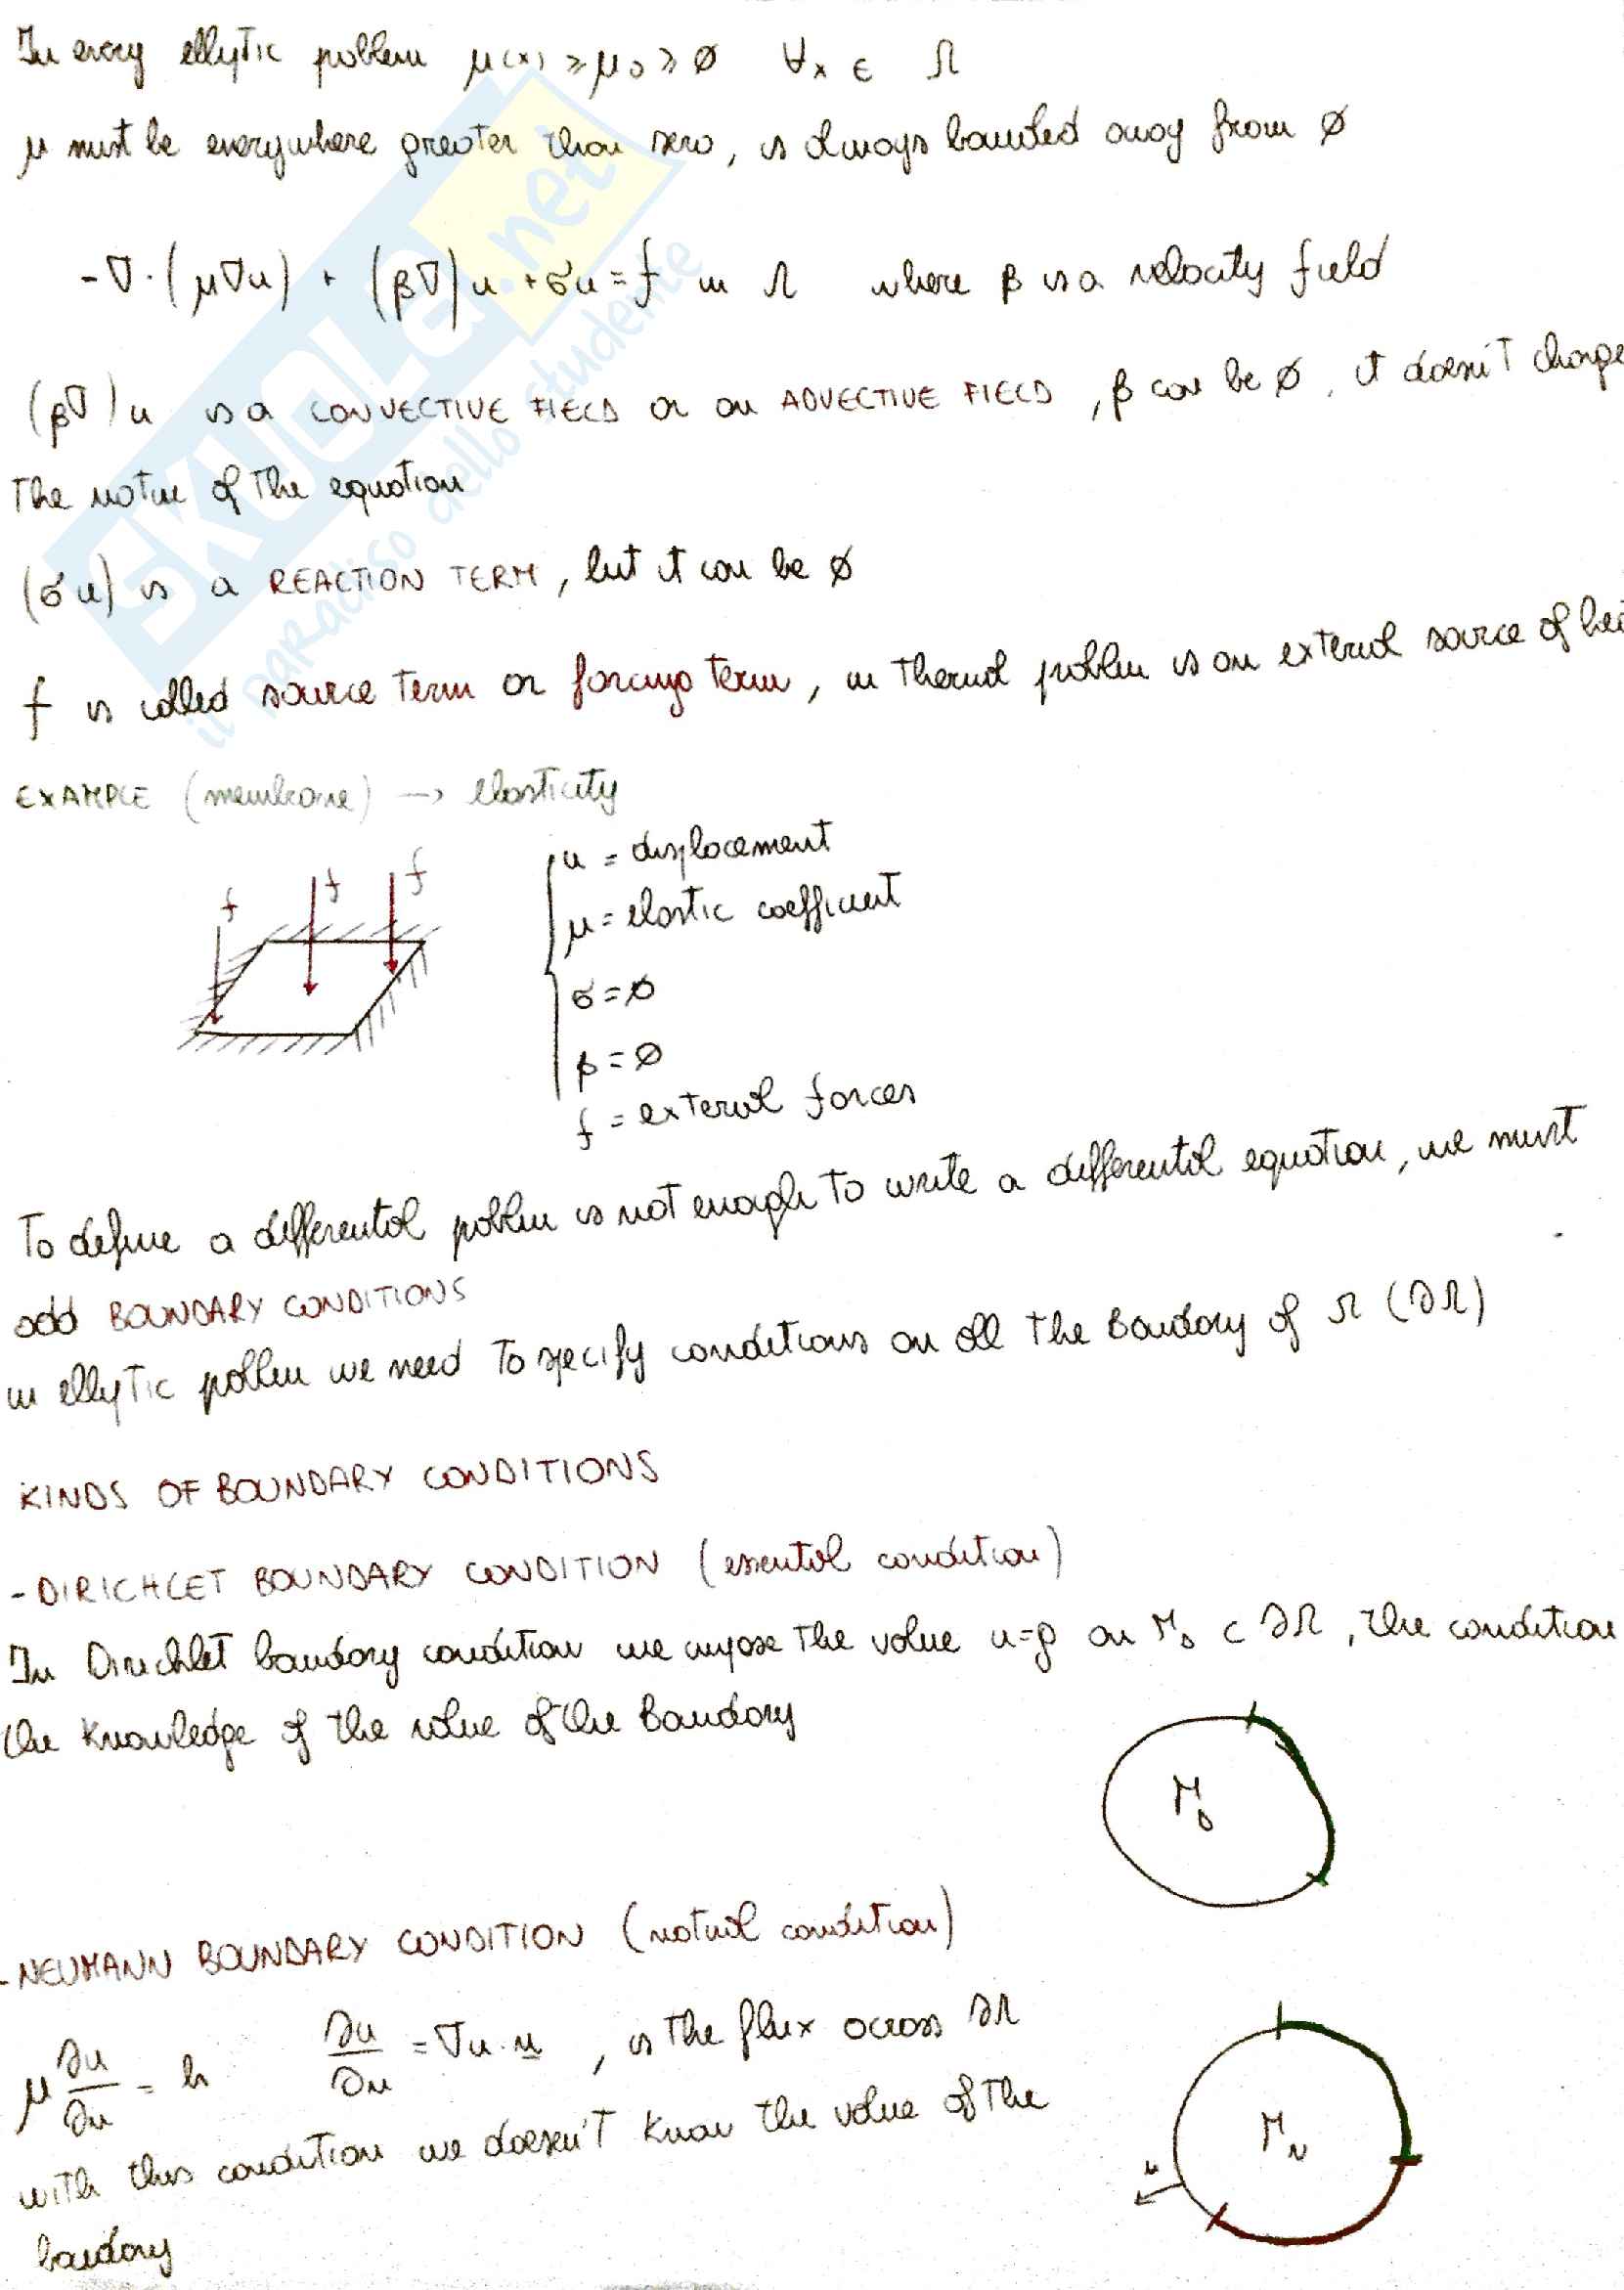 In every ellyptic problem μ(x) ≥ μ₀ ≥ ∅ ∀x ∈ Ω
μ must be everywhere greater than zero, is always bounded away from ∅
-∇·(μ∇u) + (β∇)u + σu = f in Ω where β is a velocity field
(β∇)u is a CONVECTIVE FIELD or an ADVECTIVE FIELD, β can be ∅, it doesn't change
the nature of the equation
(σu) is a REACTION TERM, but it can be ∅
f is called source term or forcing term, in thermal problem is an external source of hea
EXAMPLE (membrane) → elasticity
f f f
u = displacement
μ = elastic coefficient
σ = ∅
β = ∅
f = external forces
To define a differential poblem is not enough to write a differential equation, we must
add BOUNDARY CONDITIONS
in ellyptic poblem we need to specify conditions on all the Boundary of Ω (∂Ω)
KINDS OF BOUNDARY CONDITIONS
-DIRICHLET BOUNDARY CONDITION (essential condition)
In Dirichlet boundary condition we impose the value u=g on Γ_D ⊂ ∂Ω, the condition
the knowledge of the value of the Boundary
Γ_D
-NEUMANN BOUNDARY CONDITION (natural condition)
μ ∂u/∂n = h ∂u/∂n = ∇u·n, is the flux across ∂Ω
with this condition we doesn't know the value of the
boundary
Γ_N
n
SKUOLa.net
il paradiso dello studente